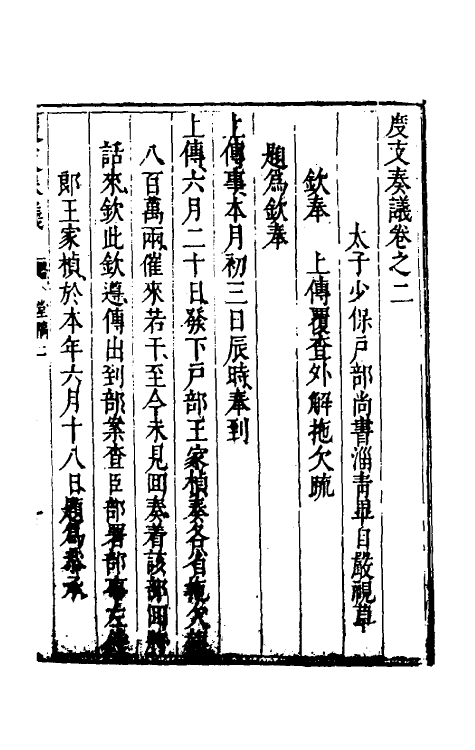 度支奏議卷之二
太子少保戶部尚書淄青畢自嚴視草
欽奉　上傳覆查外解拖欠疏
題爲欽奉
上傳事本月初三日辰時奉到
上傳六月二十日發下戶部王家楨奏各省拖欠
八百萬兩催來若干至今未見回奏着該部回將
話來欽此欽遵傳出到部案查臣部署部事左侍
郎王家楨於本年六月十八日題爲恭承
度支奏議
堂稿二